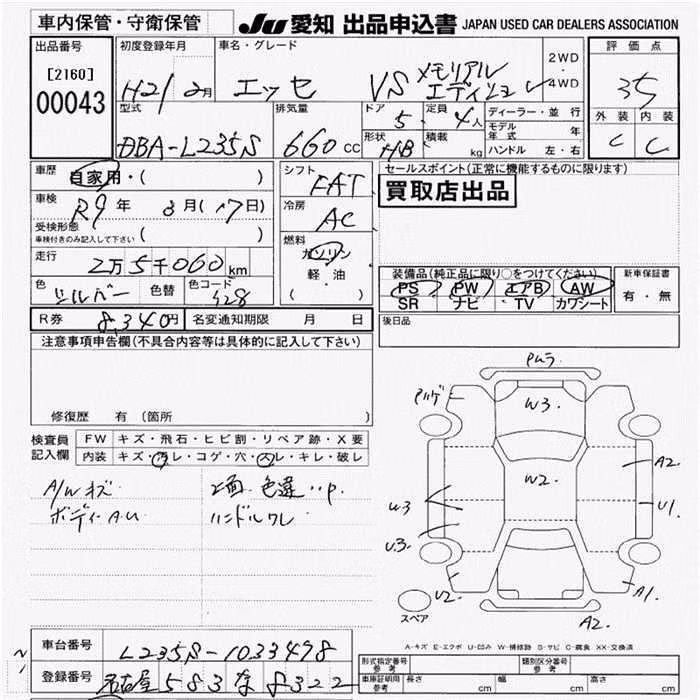 車内保管・守衛保管
JU 愛知 出品申込書 JAPAN USED CAR DEALERS ASSOCIATION
出品番号
[2160]
00043
初度登録年月
H21 2月
車名・グレード
エッセ VS メモリアル
エディション
2WD
・
4WD
評価点
35
外装 内装
C C
型式
DBA-L235S
排気量
660 cc
ドア
5
定員
4人
形状
HB
積載
kg
ディーラー・並行
モデル年式 年
ハンドル 左・右
車歴
自家用・( )
車検
R9年 8月(17日)
受検形態
車検付きのみ記入して下さい ( )
走行
2万5千060km
色
シルバー
色替
色コード
S28
シフト
FAT
冷房
AC
燃料
ガソリン
軽・油
( )
セールスポイント(正常に機能するものに限ります)
買取店出品
装備品(純正品に限り○をつけてください)
PS PW エアB AW
SR ナビ TV カワシート
新車保証書
有・無
R券 8,340円 名変通知期限 月 日
後日品
注意事項申告欄(不具合内容等は具体的に記入して下さい)
修復歴 有 (箇所 )
検査員
記入欄
FW キズ・飛石・ヒビ割・リペア跡・X要
内装 キズ・汚レ・コゲ・穴・スレ・キレ・破レ
A/Wキズ
ボディーA.U
色違
ハンドルスレ
W3
W2
A2
U1
U3
U3
U2
A1
A2
スペア
A-キズ E-エクボ U-凹み W-補修跡 S-サビ C-腐食 XX-交換済
車台番号
L235S-1033498
登録番号
名古屋 583 な 8322
型式指定番号
参考
類別区分番号
参考
車庫証明用
参考
長さ cm
幅 cm
高さ cm